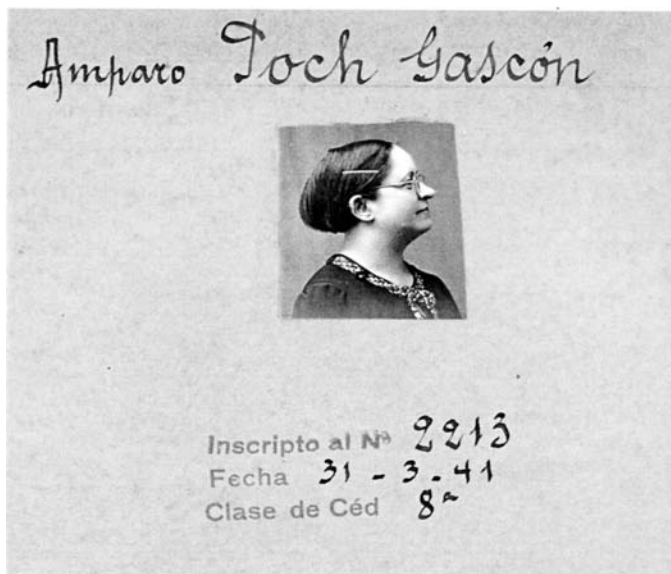 Amparo Poch Gascón
Inscripto al Nº 2213
Fecha 31 - 3 - 41
Clase de Céd 8ª